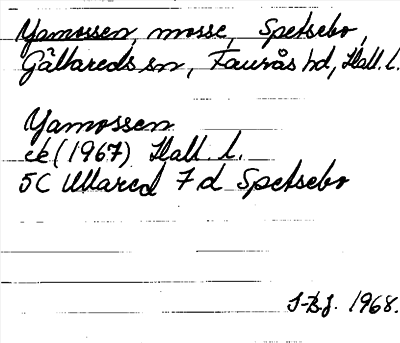 Yamossen, mosse, Spetsebo,
Gällareds sn, Faurås hd, Hall. l.
Yamossen
ek (1967) Hall. l.
5C Ullared 7 d Spetsebo
S-B.J. 1968.